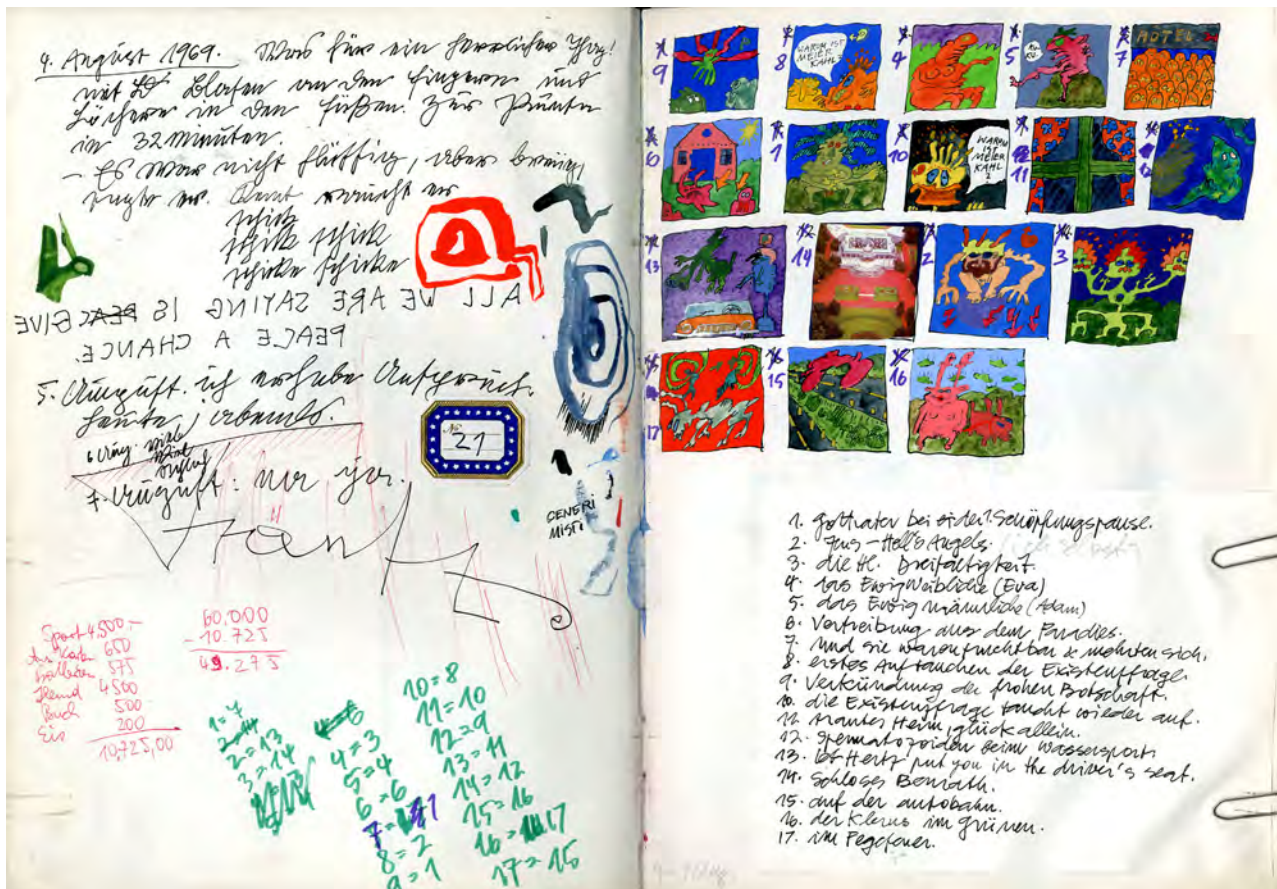 4. August 1969. Was für ein herrlicher Tag!
mit Blasen an den Fingern und
Löchern in den Füßen. zur Piünte
in 32 Minuten
- Es war nicht flüssig, aber breiig,
sagte er.
schick
schick schick
schicke schicke
ALL WE ARE SAYING IS PEAC GIVE
PEACE A CHANCE.
5. August. ich erhebe Anspruch.
heute abends.
6 Aug.
7. August: nur you.
No
21
GENERI
MISTI
Sport 4,500,-
650
575
Hemd 4500
Buch 500
Eis 200
10,725,00
60,000
- 10.725
49.275
1=7
2=14
2=13
3=14
4=6
4=3
5=4
6=6
7=1
8=2
9=1
10=8
11=10
12=9
13=11
14=12
15=16
16=17
17=15
9
8
WARUM IST
MEIER
KAHL?
4
5
7
HOTEL
6
1
10
WARUM
IST
MEIER
KAHL?
11
12
13
14
2
3
17
15
16
1. Gottvater bei der 1. Schöpfungspause.
2. Jesus - Hell's Angels.
3. die Hl. Dreifaltigkeit.
4. das Ewig Weibliche (Eva)
5. das Ewig männliche (Adam)
6. Vertreibung aus dem Paradies.
7. und sie waren fruchtbar & mehrten sich.
8. erstes Auftauchen der Existenzfrage.
9. Verkündung der frohen Botschaft.
10. die Existenzfrage taucht wieder auf.
11. trautes Heim, glück allein.
12. Spermatozoiden beim Wassersport.
13. let Hertz put you in the driver's seat.
14. Schloss Benrath.
15. auf der autobahn.
16. der Klerus im grünen.
17. im Fegefeuer.